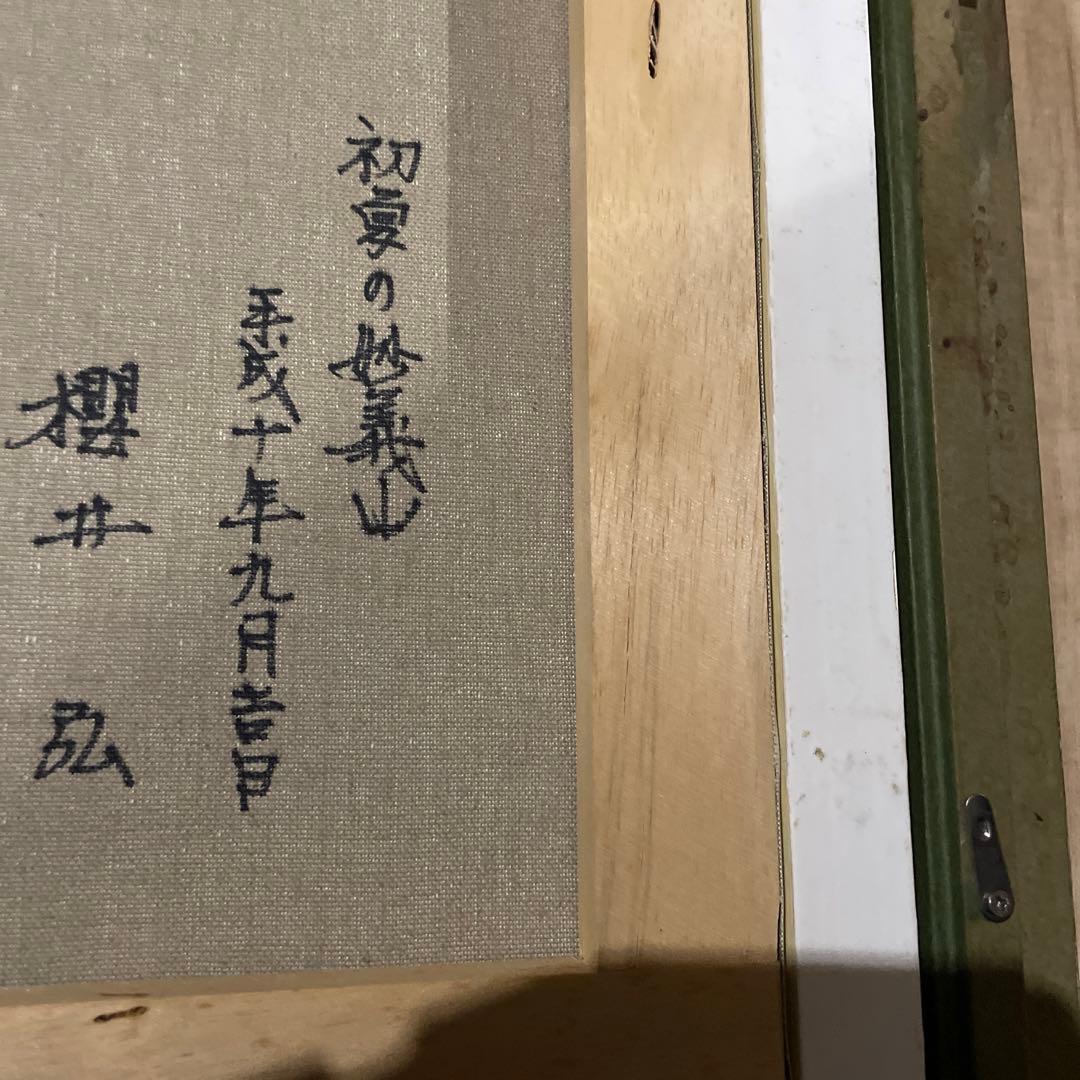 初夏の妙義山
平成十年九月吉日
櫻井 弘